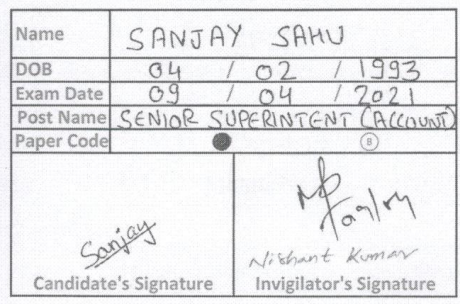 Name SANJAY SAHU
DOB 04 / 02 / 1993
Exam Date 09 / 04 / 2021
Post Name SENIOR SUPERINTENT (ACCOUNT)
Paper Code B
Sanjay
Nishant Kumar
Candidate's Signature Invigilator's Signature